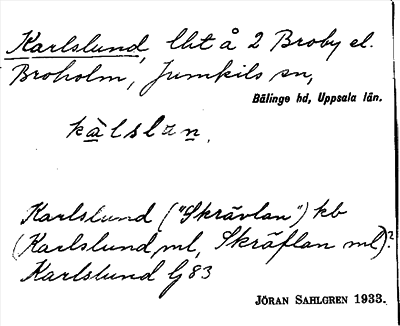 Karlslund, lht å 2 Broby el.
Broholm, Jumkils sn,
Bälinge hd, Uppsala län.
kàlslun.
Karlslund ("Skrävlan") kb
(Karlslund ml, Skräflan ml)?
Karlslund Gj 83
JÖRAN SAHLGREN 1933.